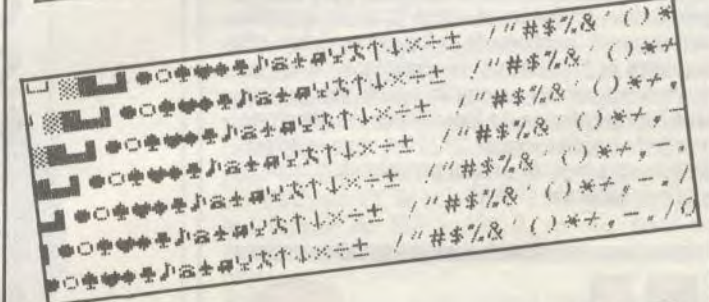 ●○♠♥♦♣♪ ↑↓×÷± !"#$%&'()*
●○♠♥♦♣♪ ↑↓×÷± !"#$%&'()*+
●○♠♥♦♣♪ ↑↓×÷± !"#$%&'()*+,
●○♠♥♦♣♪ ↑↓×÷± !"#$%&'()*+,-
●○♠♥♦♣♪ ↑↓×÷± !"#$%&'()*+,-.
●○♠♥♦♣♪ ↑↓×÷± !"#$%&'()*+,-./
●○♠♥♦♣♪ ↑↓×÷± !"#$%&'()*+,-./0